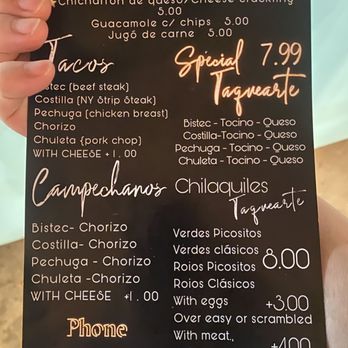 Chicharron de queso/Cheese crackling
5.00
Guacamole c/ chips 5.00
Jugó de carne 5.00
Tacos
Bistec (beef steak)
Costilla (NY Strip Steak)
Pechuga (chicken breast)
Chorizo
Chuleta (pork chop)
WITH CHEESE +1.00
Special 7.99
Taquearte
Bistec - Tocino - Queso
Costilla-Tocino - Queso
Pechuga - Tocino - Queso
Chuleta - Tocino - Queso
Campechanos
Bistec- Chorizo
Costilla- Chorizo
Pechuga - Chorizo
Chuleta -Chorizo
WITH CHEESE +1.00
Chilaquiles
Taquearte
Verdes Picositos
Verdes clásicos
Rojos Picositos
Rojos Clásicos
8.00
With eggs +3.00
Over easy or scrambled
With meat,, +4.00
Phone